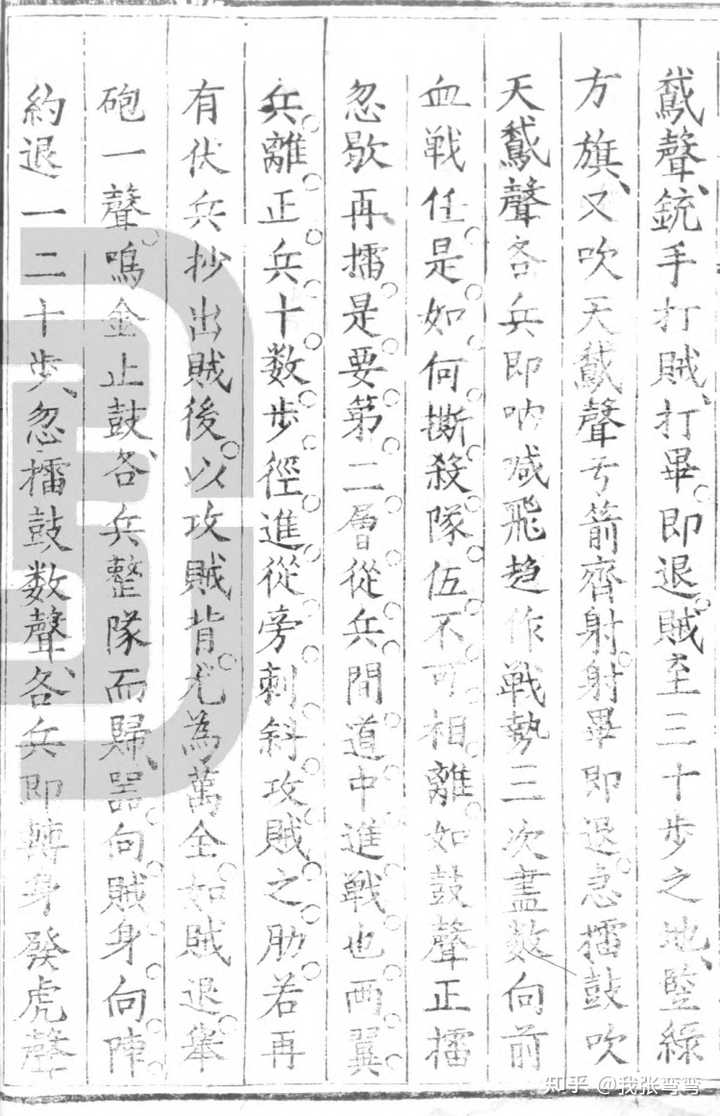 鵞聲、銃手打賊、打畢即退。賊至三十步之地、竪綠
方旗、又吹天鵞聲弓箭齊射。射畢即退。急擂鼓吹
天鵞聲各兵即吶喊飛趋作戦勢三次盡数向前
血戦任是如何撕殺隊伍不可相離如鼓聲正擂
忽歇再擂是要第二層從兵間道中進戦也両翼
兵離正兵十数步徑進從旁刺斜攻賊之肋若再
有伏兵抄出賊後以攻賊背尤為萬全如賊退舉
砲一聲鳴金止鼓各兵整隊而歸、器向賊身向陣
約退一二十步、忽擂鼓数聲、各兵即轉身發虎聲
知乎 @我张弯弯